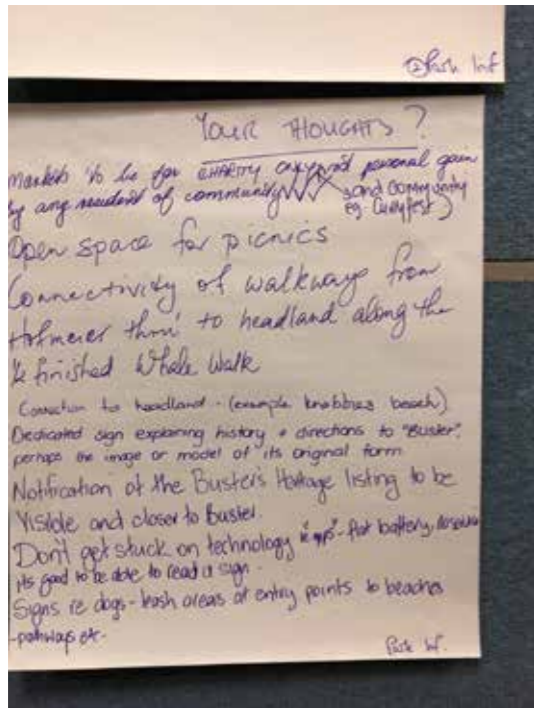 Park Inf
YOUR THOUGHTS?
Markets to be for CHARITY only not personal gain
by any resident of community
and community
eg. Curryfest)
Open space for picnics
Connectivity of walkways from
Hofmeier thru' to headland along the
1/2 finished Whale Walk
Connection to headland - (example knobbies beach)
Dedicated sign explaining history + directions to "Buster",
perhaps the image or model of its original form
Notification of the Buster's Heritage listing to be
Visible and closer to Buster.
Don't get stuck on technology - flat battery, no service
its good to be able to read a sign.
Signs re dogs - leash areas at entry points to beaches
- pathways etc -
Park Inf.